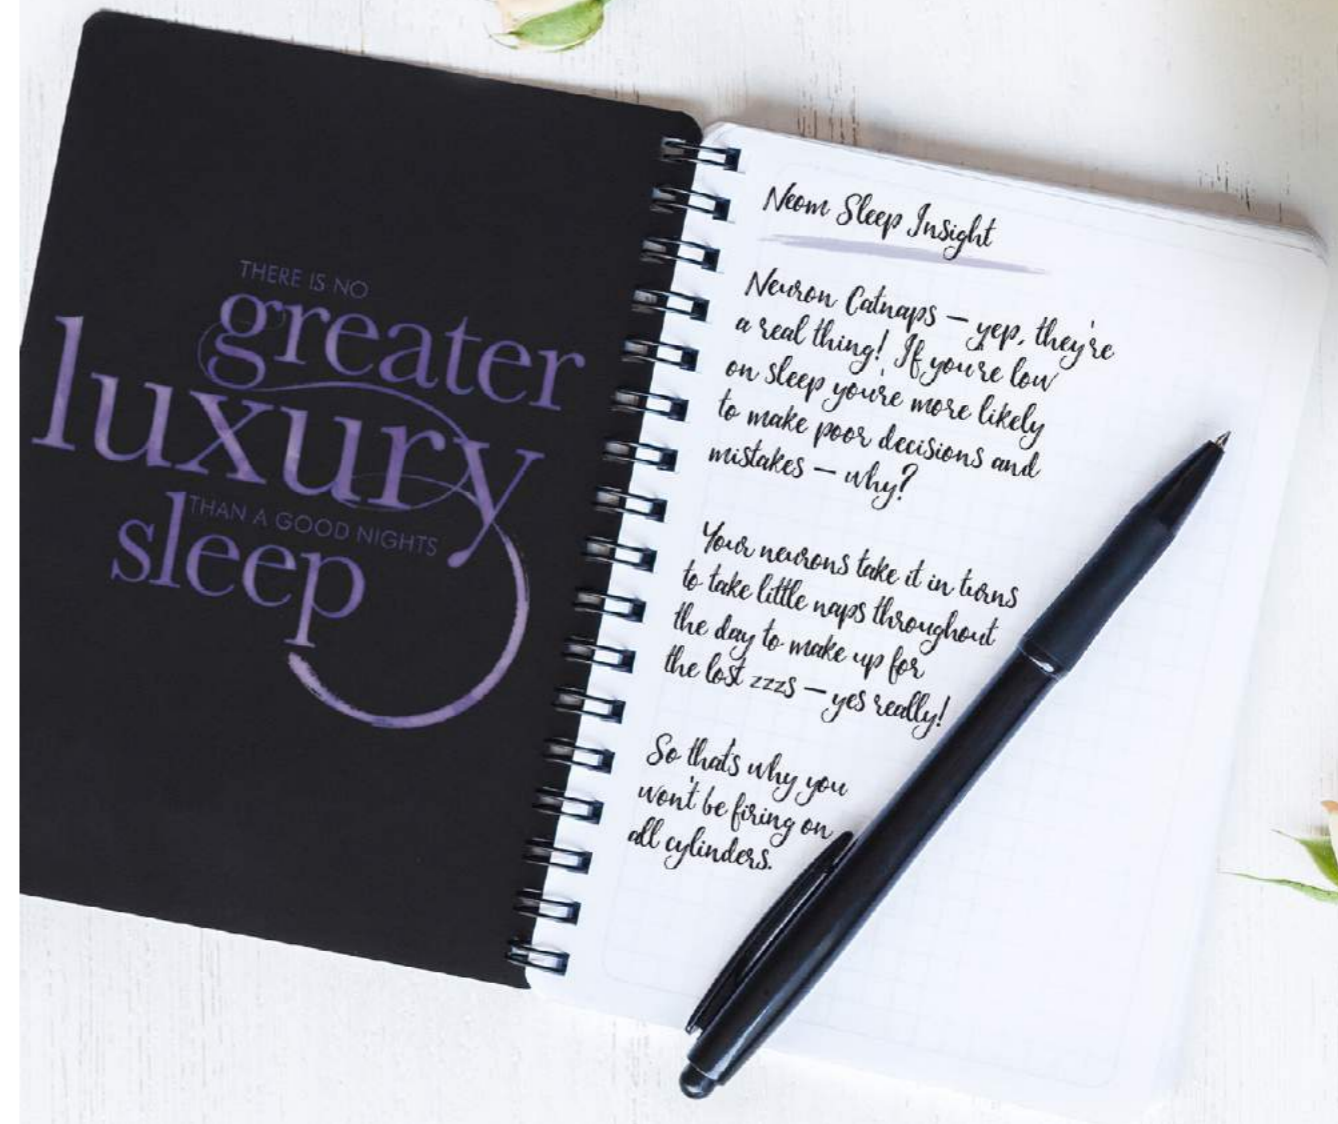 THERE IS NO
greater
luxury
THAN A GOOD NIGHTS
sleep
Neom Sleep Insight
Neuron Catnaps – yep, they're
a real thing! If you're low
on sleep you're more likely
to make poor decisions and
mistakes – why?
Your neurons take it in turns
to take little naps throughout
the day to make up for
the lost zzzs – yes really!
So thats why you
won't be firing on
all cylinders.